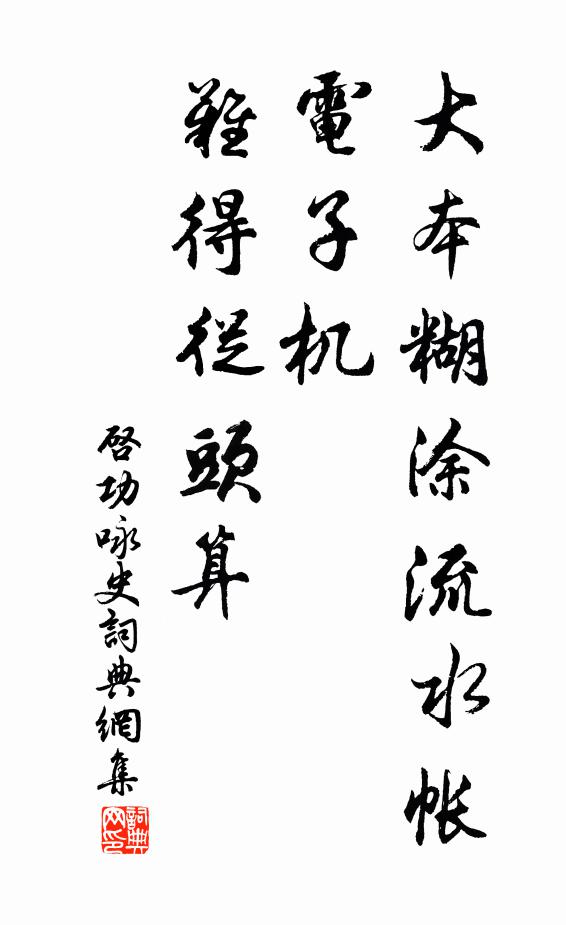 大本糊涂流水帐
電子机
難得從頭算
啓功咏史詞典網集
詞典网印